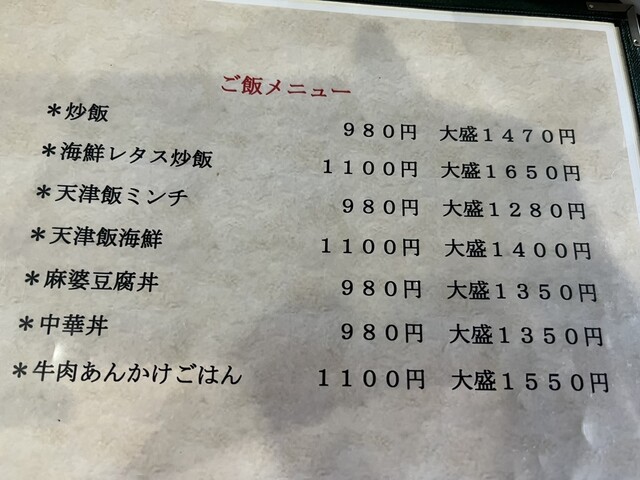 ご飯メニュー
＊炒飯 ９８０円 大盛１４７０円
＊海鮮レタス炒飯 １１００円 大盛１６５０円
＊天津飯ミンチ ９８０円 大盛１２８０円
＊天津飯海鮮 １１００円 大盛１４００円
＊麻婆豆腐丼 ９８０円 大盛１３５０円
＊中華丼 ９８０円 大盛１３５０円
＊牛肉あんかけごはん １１００円 大盛１５５０円